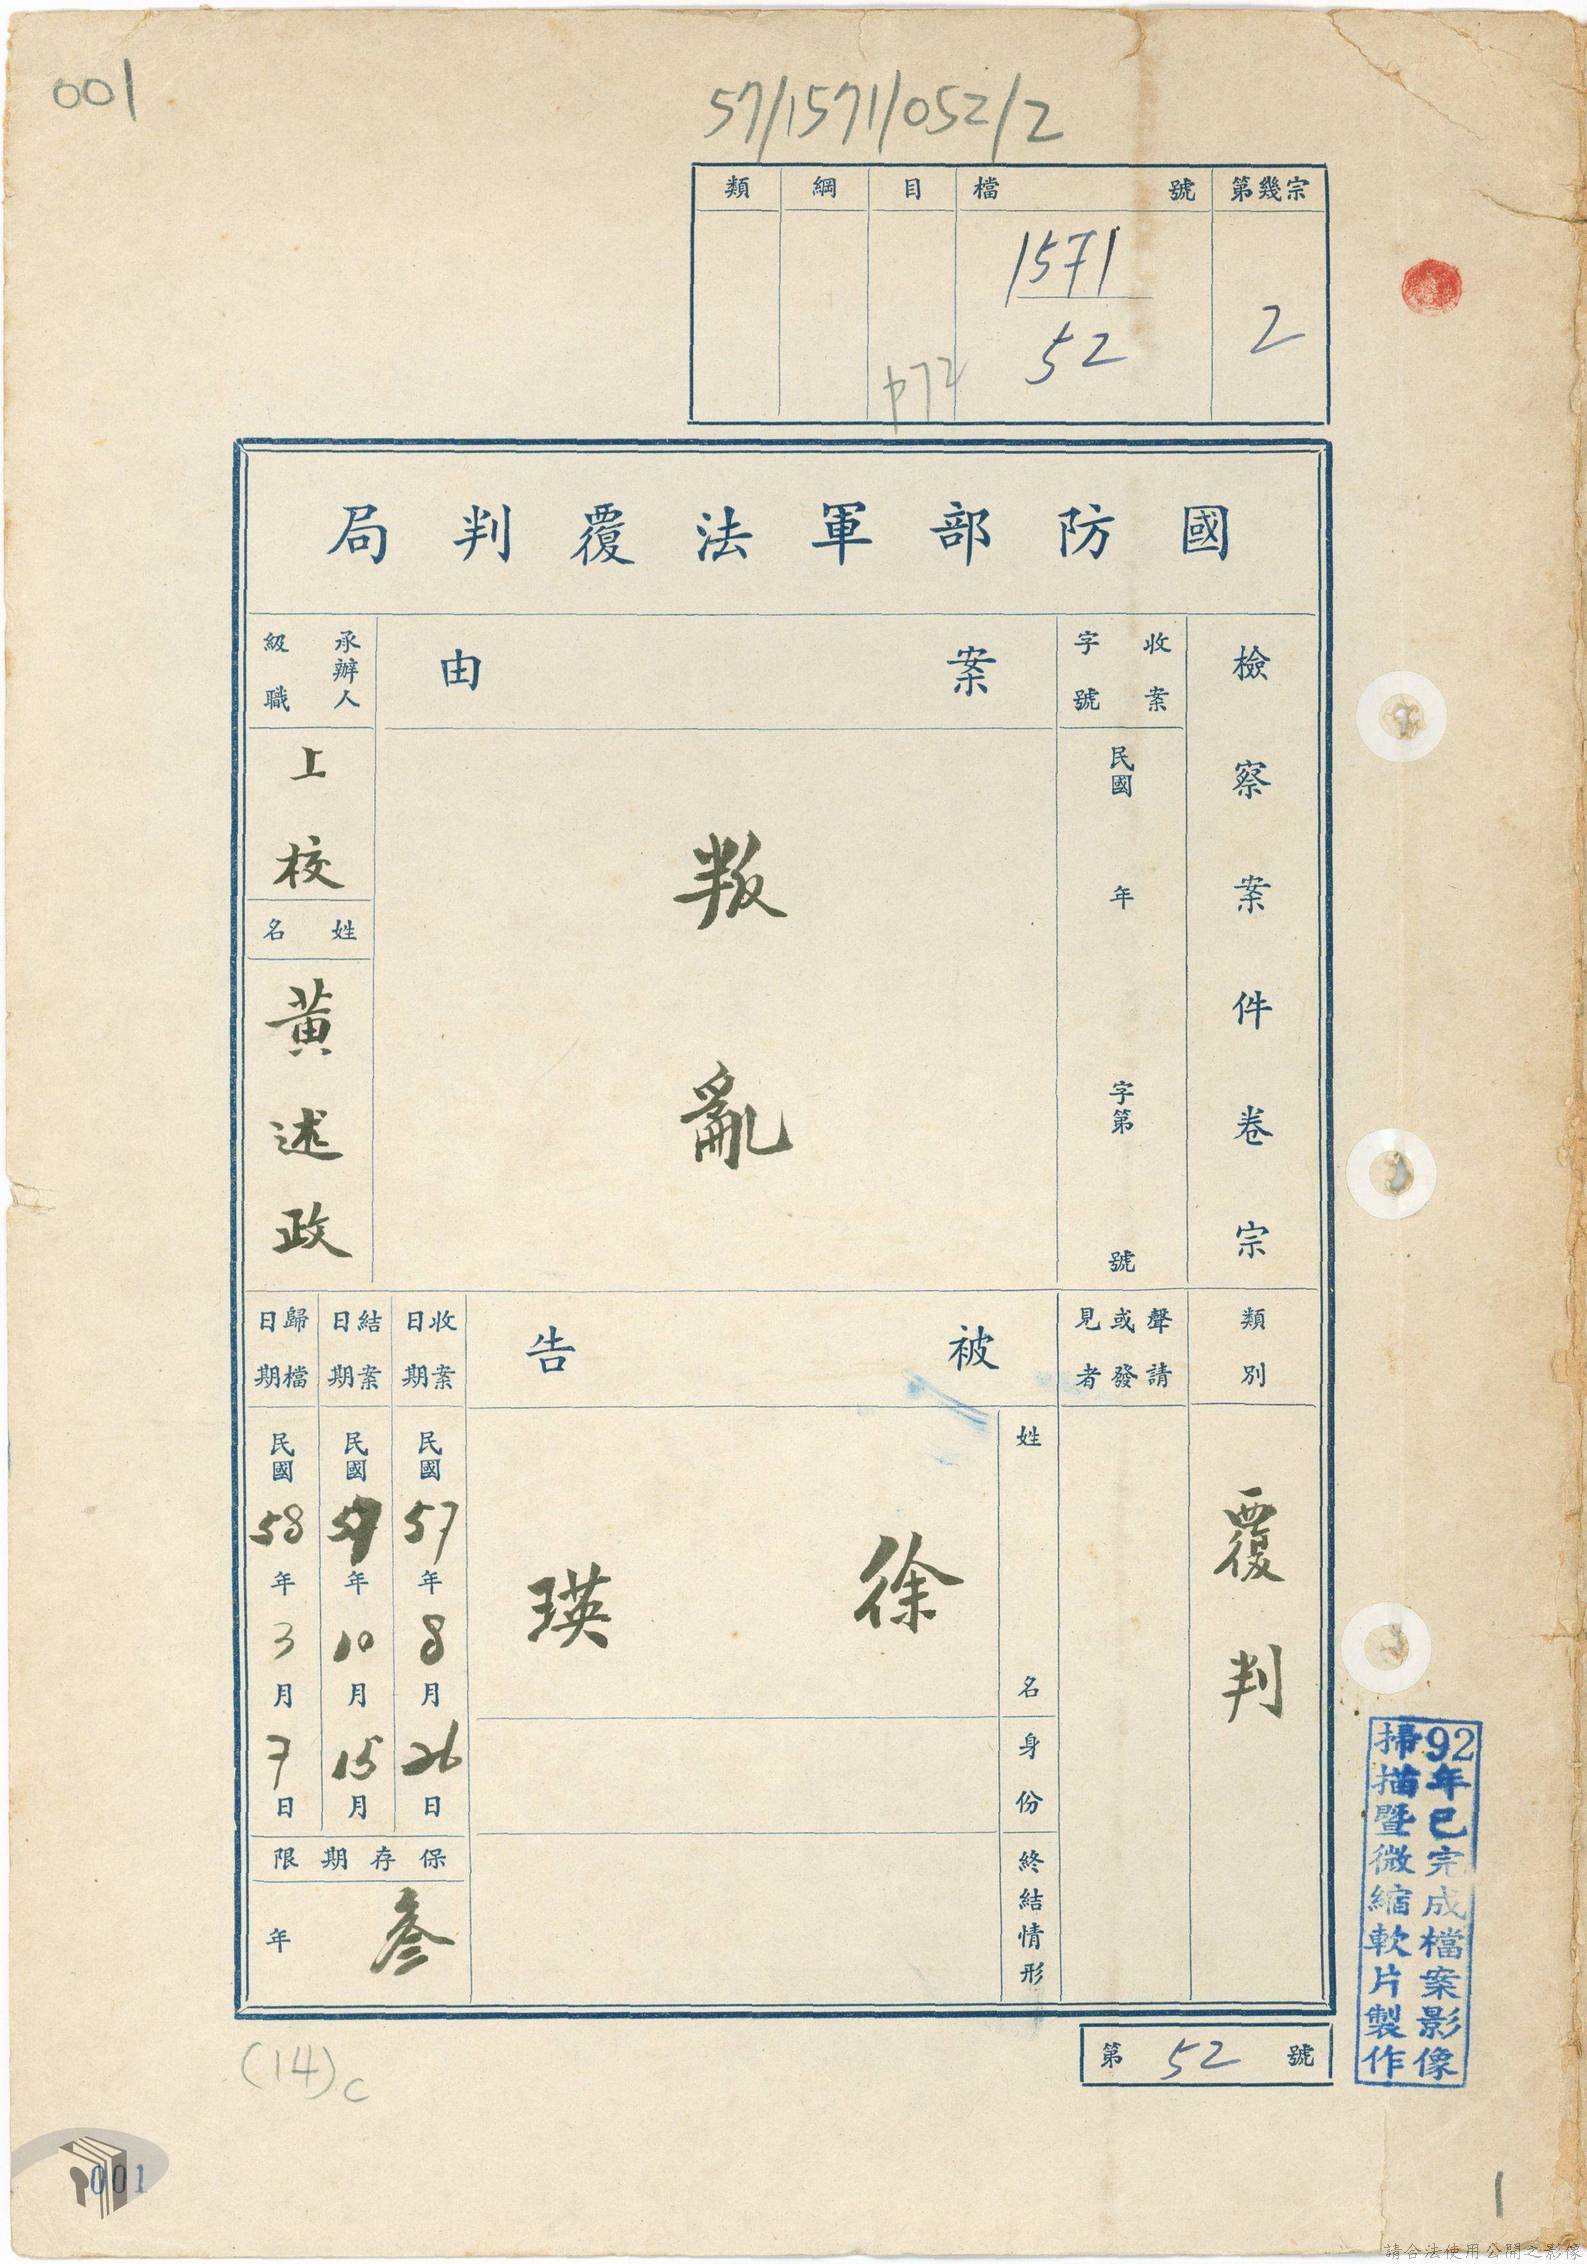 001
57/1571/052/2
類 綱 目 檔號 第幾宗
1571
52
2
p72
國防部軍法覆判局
檢察案件卷宗
收案字號
民國 年 字第 號
案由
叛亂
承辦人級職
上校
姓名
黃述政
類別
覆判
聲請或發見者
被告
姓名
徐瑛
身份
終結情形
收案日期
民國57年8月26日
結案日期
民國57年10月15月
歸檔日期
民國58年3月7日
保存期限
叁年
第52號
92年已完成檔案影像
掃描暨微縮軟片製作
(14)c
001
1
請合法使用公開之影像